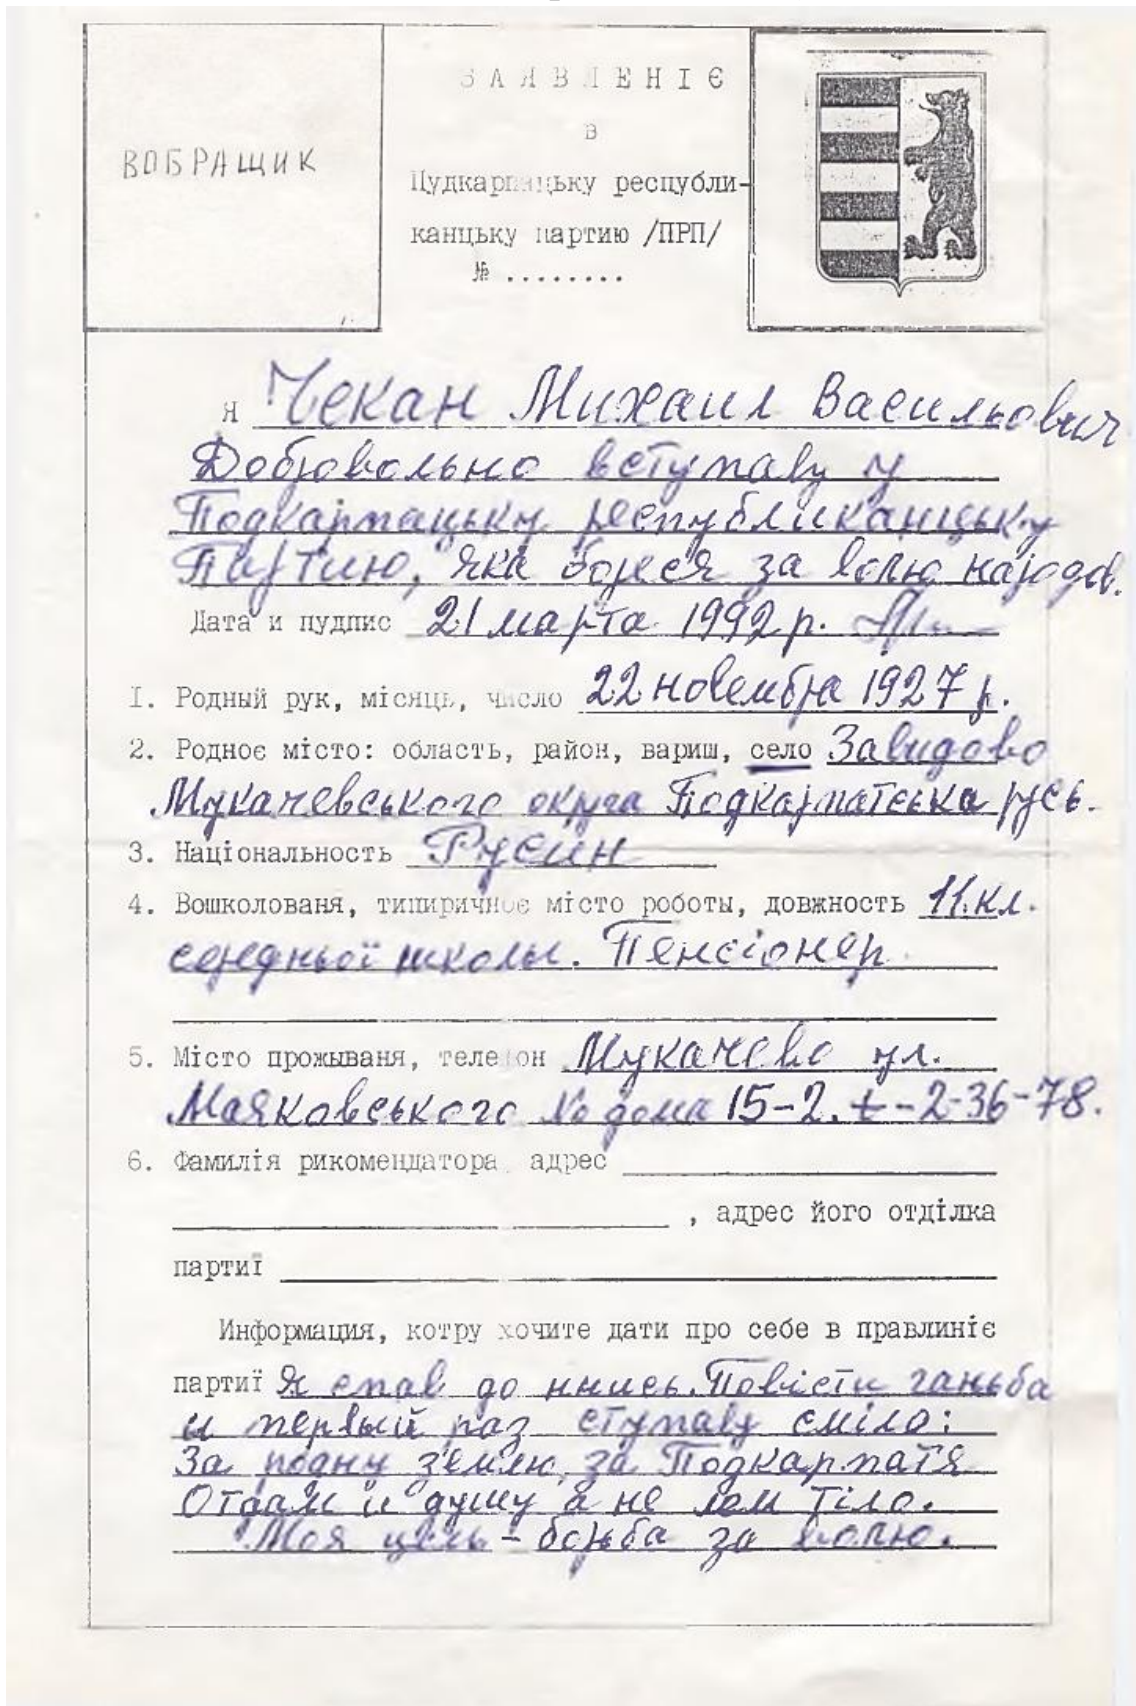 ЗАЯВЛЕНІЄ
в
ВОБРАЩИК
Пудкарпацьку республи-
канцьку партию /ПРП/
№ ........
я Чекан Михаил Васильович
Добровольно вступаву у
Подкарпацьку республиканцьку
Партию, яка бореся за волю народов.
Дата и пудпис 21 марта 1992 р.
1. Родный рук, місяць, число 22 новембра 1927 р.
2. Родноє місто: область, район, вариш, село Завидово
Мукачевського округа Подкарпатська русь.
3. Національность Русин
4. Вошколованя, типиричноє місто роботы, довжность 11.кл.
середньої школы. Пенсіонер
5. Місто прожываня, телефон Мукачево ул.
Маяковського № дома 15-2. т-2-36-78.
6. Фамилія рикомендатора, адрес
, адрес його отділка
партиї
Информация, котру хочите дати про себе в правлиніє
партиї Я спав до ннись. Повісти ганьба
и первый раз ступаву сміло:
За родну землю, за Подкарпатя
Отдам и душу а не лем тіло.
Моя цель - борьба за волю.